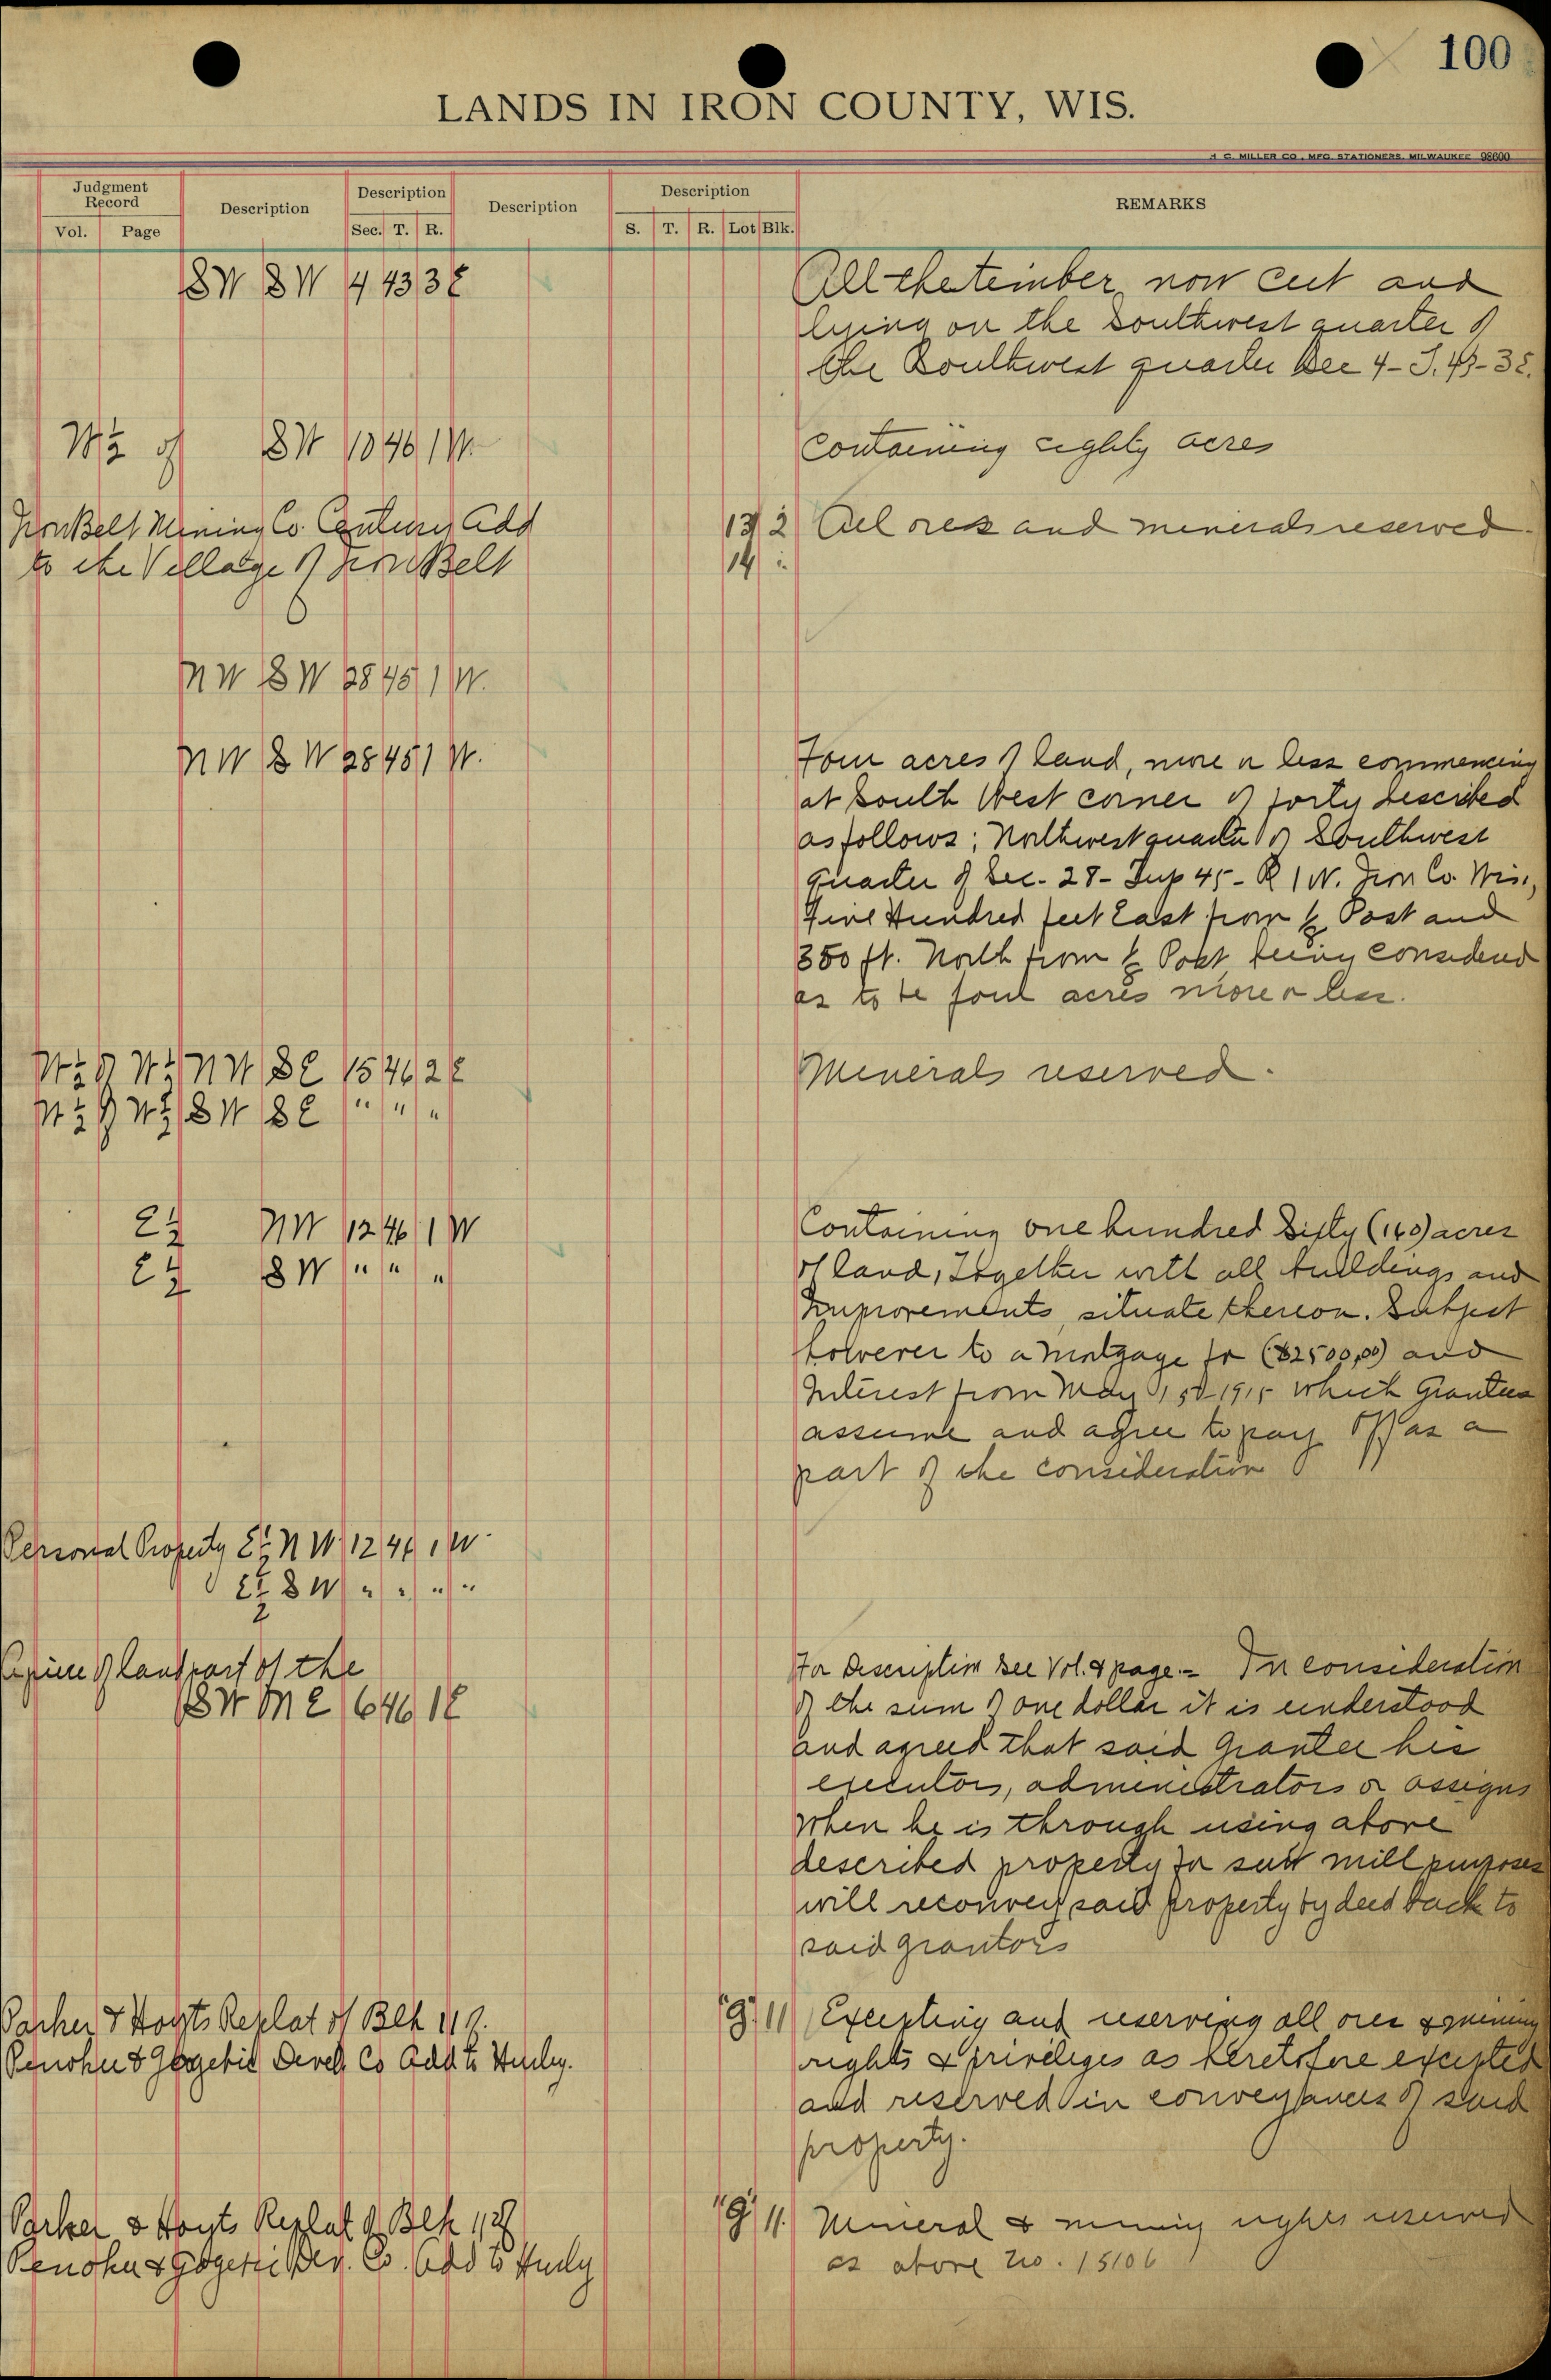 100
LANDS IN IRON COUNTY, WIS.
H. C. MILLER CO., MFG. STATIONERS, MILWAUKEE 98600
Judgment Record
Vol. Page
Description
Description
Sec. T. R.
Description
Description
S. T. R. Lot Blk.
REMARKS
SW SW 4 43 3E
All the timber now cut and
lying on the Southwest quarter of
the Southwest quarter Sec 4-T.43-3E.
W½ of SW 10 46 1 W.
Containing eighty acres
Iron Belt Mining Co. Century Add
to the Village of Iron Belt
13 2 All ores and minerals reserved.
14 "
NW SW 28 45 1 W.
NW SW 28 45 1 W.
Four acres of land, more or less commencing
at South West corner of forty described
as follows: Northwest quarter of Southwest
quarter of Sec. 28- Twp 45- R 1 W. Iron Co. Wis.,
Five Hundred feet East from ¼ Post and
350 ft. North from ¼ Post being considered
as to be four acres more or less.
W½ of W½ NW SE 15 46 2E
W½ of W½ SW SE " " "
Minerals reserved.
E½ NW 12 46 1 W
E½ SW " " "
Containing one hundred Sixty (160) acres
of land, Together with all buildings and
Improvements, situate thereon. Subject
however to a Mortgage for ($2500.00) and
Interest from May 1st 1915 which Grantees
assume and agree to pay off as a
part of the consideration
Personal Property E½ NW 12 46 1 W
E½ SW " " " "
A piece of land part of the
SW NE 6 46 1E
For Description See Vol. & page.- In consideration
of the sum of one dollar it is understood
and agreed that said Grantee his
executors, administrators or assigns
when he is through using above
described property for saw mill purposes
will reconvey said property by deed back to
said grantors
Parker & Hoyts Replat of Blk 11 of
Penokee & Gogebic Devel. Co Add to Hurley.
"g" 11 Excepting and reserving all ores & mining
rights & priveliges as heretofore excepted
and reserved in conveyances of said
property.
Parker & Hoyts Replat of Blk 11 of
Penokee & Gogebic Dev. Co. Add to Hurly
"g" 11. Mineral & mining rights reserved
as above No. 15106